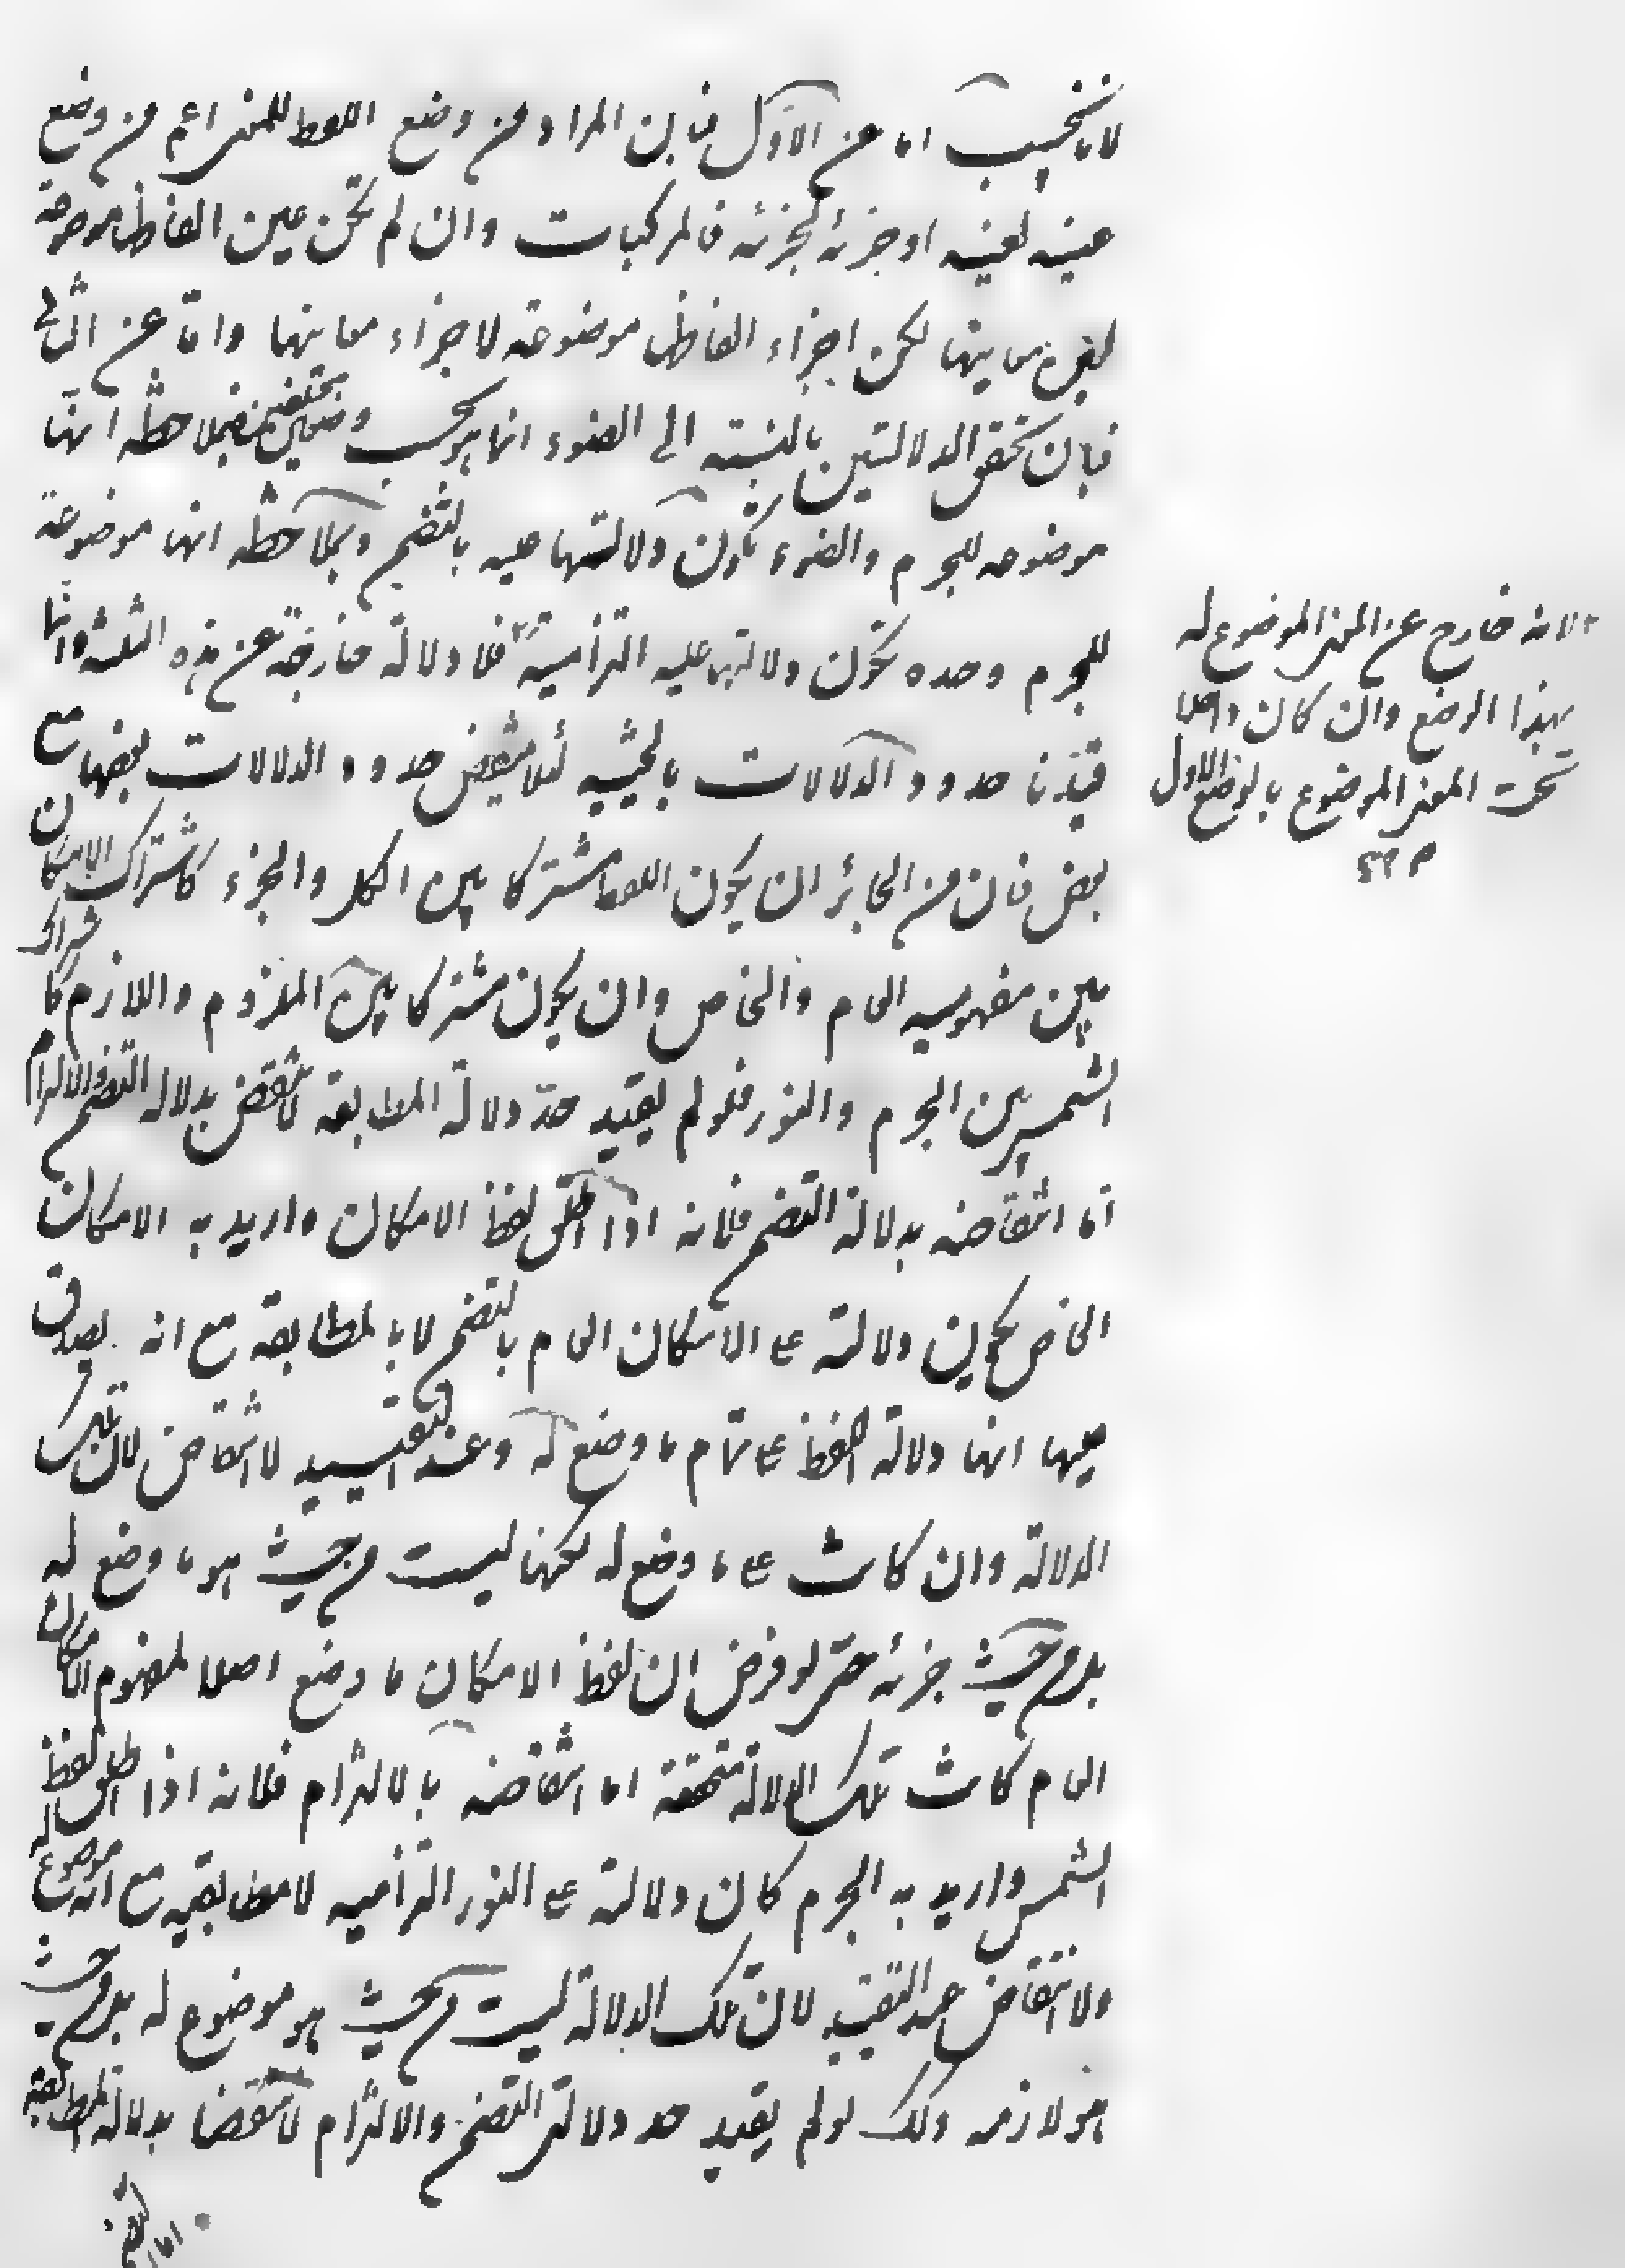 لانا نجيب اما عن الاول فبان المراد من وضع اللفظ للمعنى اعم من وضع
عينه لعينه او جزئه لجزئه فالمركبات وان لم تكن عين الفاظها موضوعة
لعين معانيها لكن اجزاء الفاظها موضوعة لاجزاء معانيها واما عن الثاني
فبان تحقق الدلالتين بالنسبة الى الضوء انما هو بحسب وضعين مختلفين فبملاحظة انها
موضوعه للجرم والضوء تكون دلالتها عليه بالتضمن وبملاحظة انها موضوعة
للجرم وحده تكون دلالتها عليه التزامية فلا دلالة خارجة عن هذه الثلثة وانما
قيدنا حدود الدلالات بالحيثية لئلا ينتقض حدود الدلالات بعضها مع
بعض فان من الجائز ان يكون اللفظ مشتركا بين الكل والجزء كاشتراك الامكان
بين مفهوميه العام والخاص وان يكون مشتركا بين الملزوم واللازم كاشتراك
الشمس بين الجرم والنور فلو لم يقيد حد دلالة المطابقة لانتقض بدلالة التضمن والالتزام
اما انتقاضه بدلالة التضمن فلانه اذا اطلق لفظ الامكان واريد به الامكان
الخاص يكون دلالته على الامكان العام بالتضمن لا بالمطابقة مع انه يصدق
عليها انها دلالة اللفظ على تمام ما وضع له وعند التقييد لا انتقاض لان تلك
الدلالة وان كانت على ما وضع له لكنها ليست من حيث هو ما وضع له
بل من حيث جزئه حتى لو فرض ان لفظ الامكان ما وضع اصلا لمفهوم الامكان
العام كانت تلك الدلالة متحققة اما انتقاضه بالالتزام فلانه اذا اطلق لفظ
الشمس واريد به الجرم كان دلالته على النور التزامية لا مطابقية مع انه موضوع له
ولا انتقاض عند التقييد لان تلك الدلالة ليست من حيث هو موضوع له بل من حيث
هو لازمه وكذلك لو لم يقيد حد دلالتى التضمن والالتزام لانتقضا بدلالة المطابقة
اما التضمن
لانه خارج عن المعنى الموضوع له
بهذا الوضع وان كان داخلا
تحت المعنى الموضوع بالوضع الاول